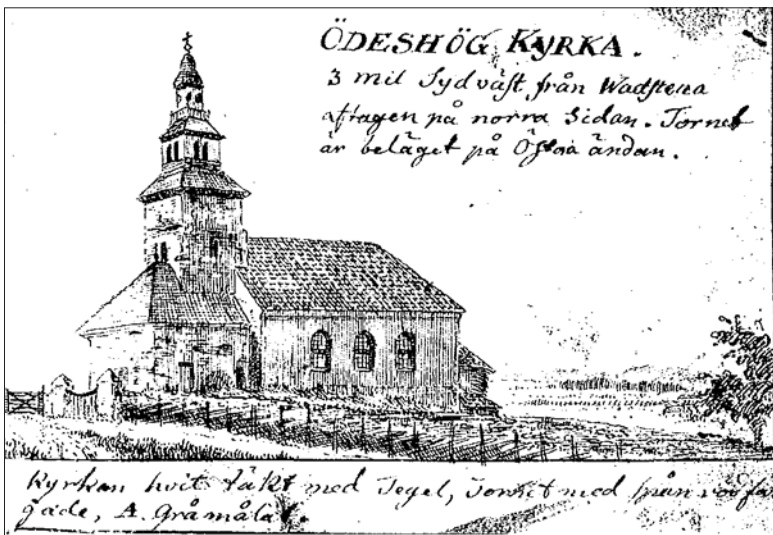 ÖDESHÖG KYRKA.
3 mil Sydväst från Wadstena
aftagen på norra Sidan. Tornet
är beläget på Östra ändan.
Kyrkan hvit täkt med Tegel, Tornet med spån rödfär
gade, A. Gråmålat.